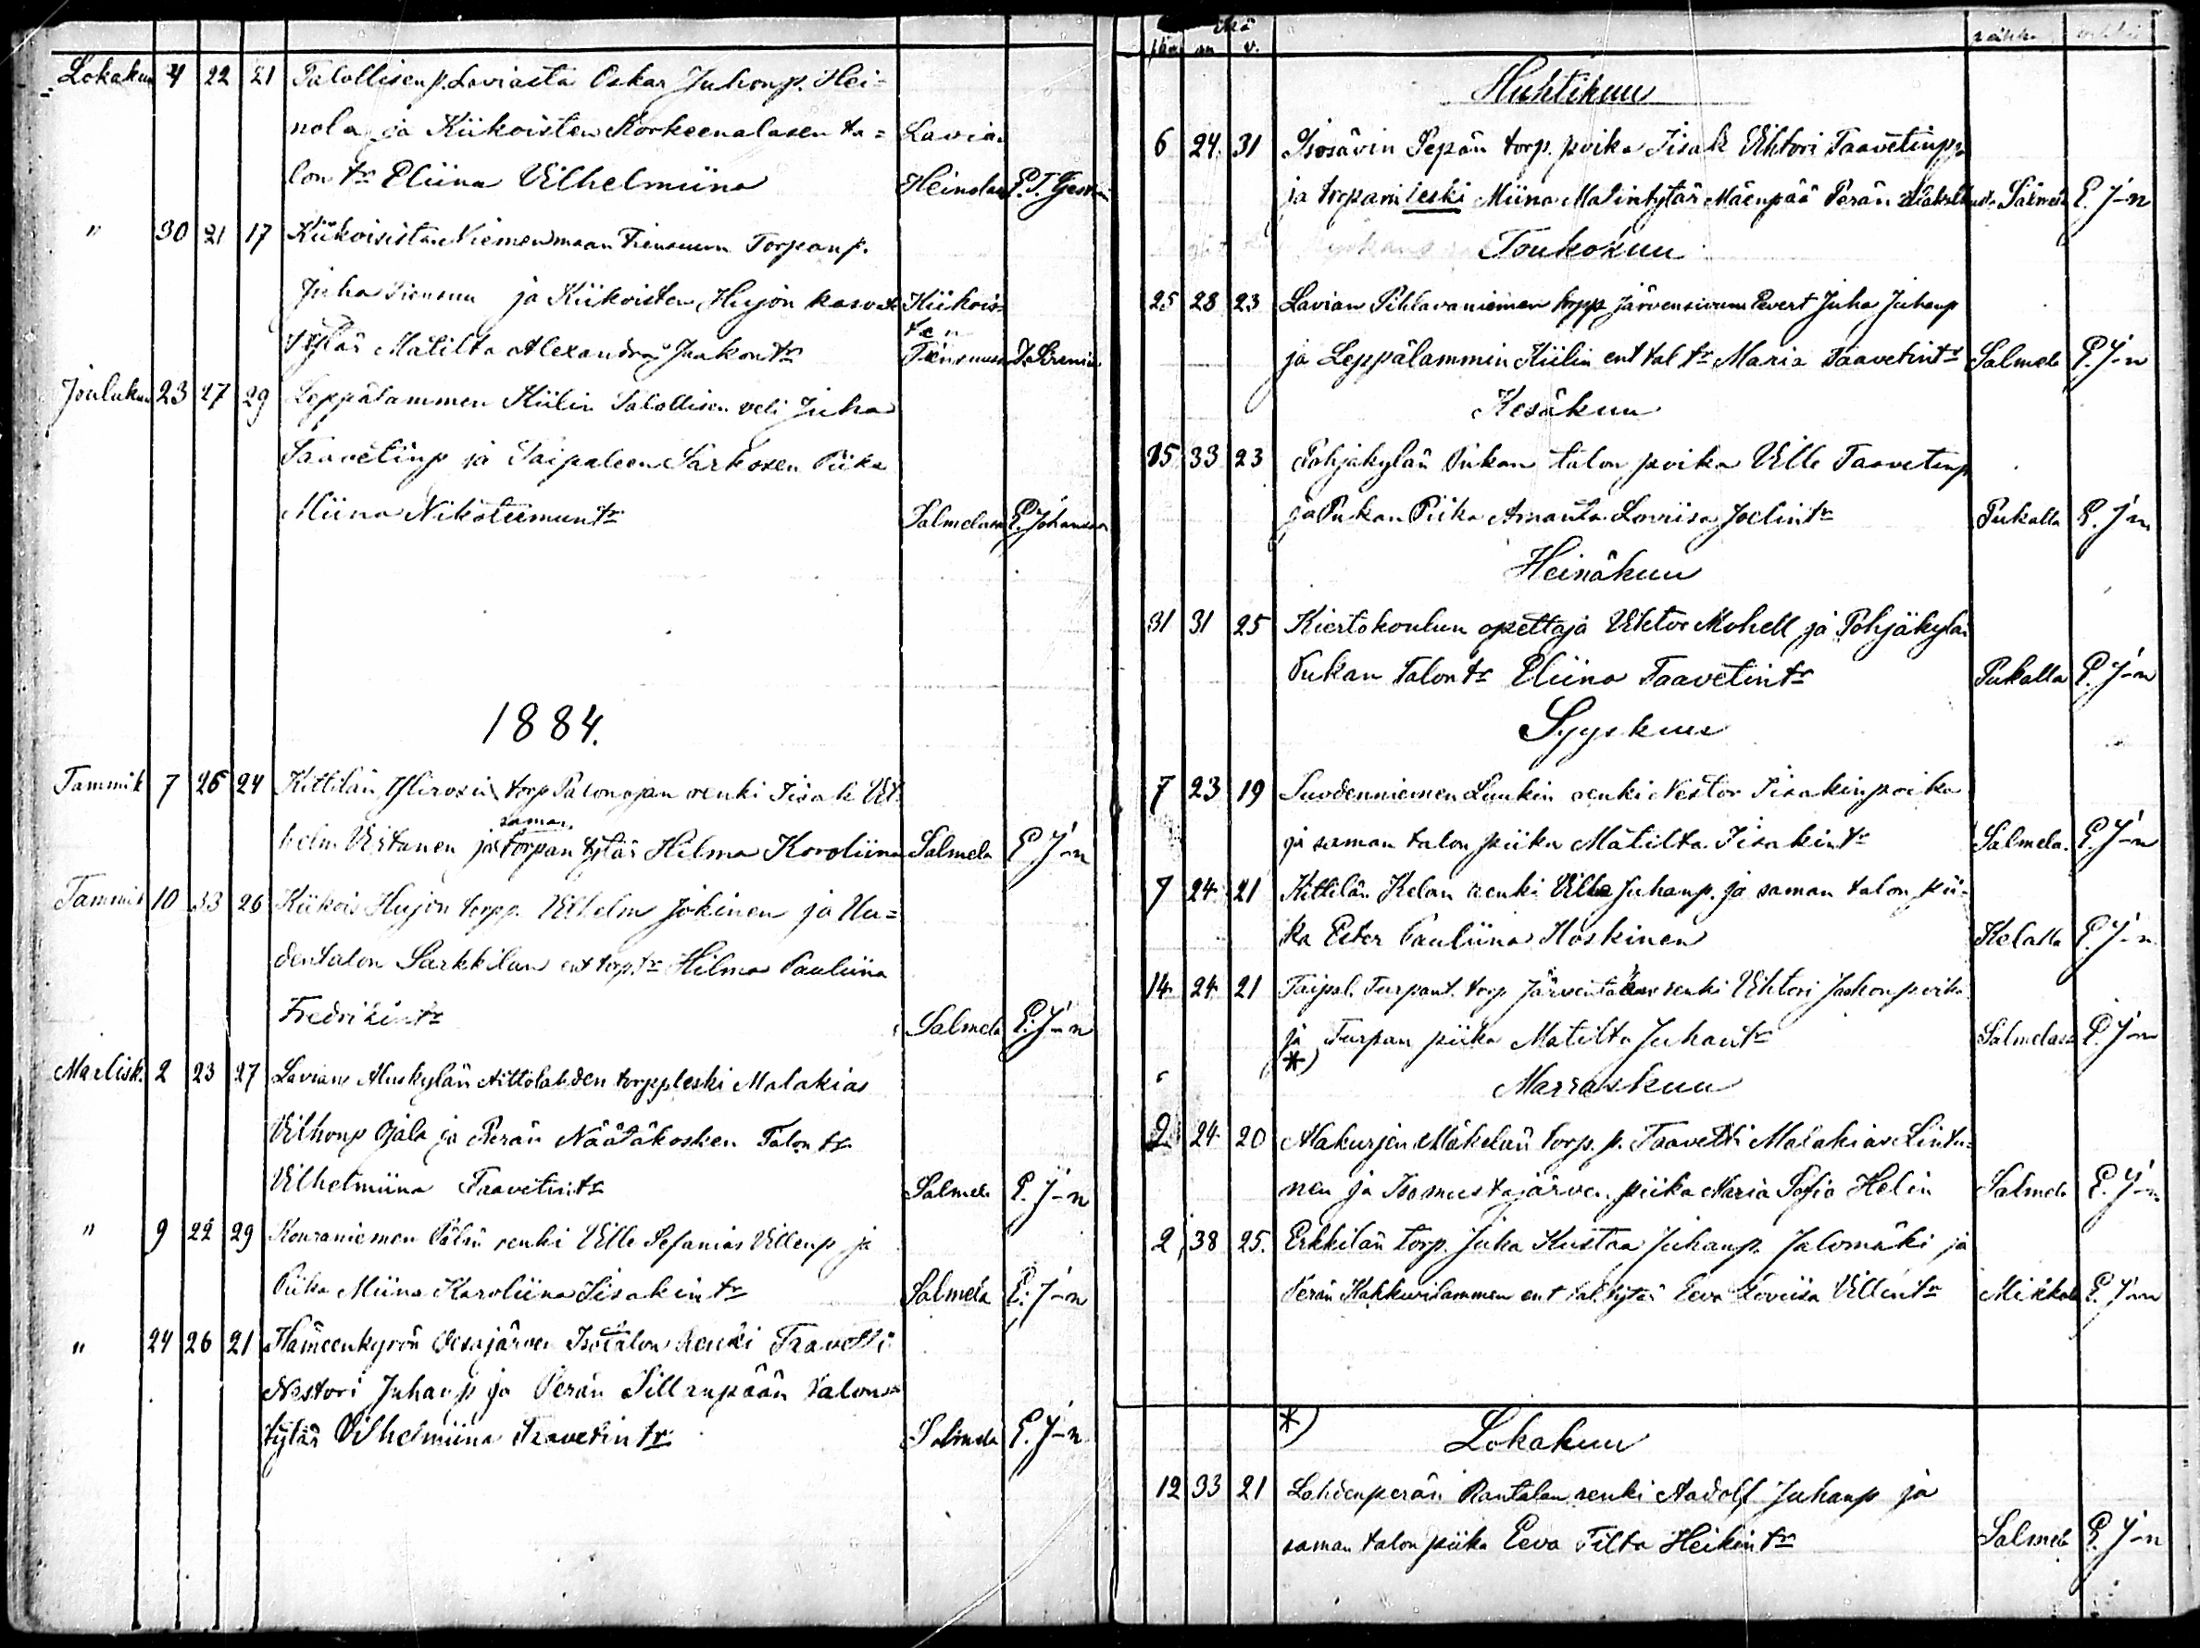 Lokakuu 4 22 21 Talollisen p. Laviasta Oskar Juhonp. Hei-
nola ja Kiikoisten Korkeenalasen ta- Lavian
lon tr Eliina Vilhelmiina Heinolas
" 30 21 17 Kiikoisista Niemenmaan Torpanp.
Juha ja Kiikoisten Hujon kasvat Kiikois-
ten
tytär Matilta Alexandra Jaakontr
Jouluku 23 27 29 Leppälammen Kiilin Talollisen veli Juha
Taavetinp ja Taipaleen Sarkosen Piika
Miina Nikoteemuntr Salmelassa E. Johansson
1884.
Tammik 7 26 24 Kittilän Ylirosin torp Palonojan renki Iisak Vil-
saman
helm Virtanen ja torpan tytär Hilma Karoliina Salmela E. J-n
Tammik 10 33 26 Kiikois Hujon torpp. Vilhelm Jokinen ja Uu-
dentalon Sarkkilan ent torp. tr Hilma Pauliina
Fredrikintr Salmela E. J-n
Maalisk. 2 23 27 Lavian Aluskylän Niittölahden torppleski Malakias
Vilhonp Ojala ja Perän Näätäkosken Talon tr
Vilhelmiina Taavetintr Salmela E. J-n
" 9 22 29 Kouraniemen Pälin renki Ville Sefanias Villenp ja
Piika Miina Karoliina Iisakintr Salmela E. J-n
" 24 26 21 Hämeenkyrön Osarajärven Isotalon renki Taavetti
Nestori Juhanp ja Perän Sillanpään talon
tytär Vilhelmiina Taavetintr Salmela E. J-n
Ikä
v.
Huhtikuu
6 24 31 Isosävin Sepän torp. poika Iisak Vihtori Taavetinp.
ja torpan leski Miina Matintytär Mäenpää Perän Salmela E. J-n
Toukokuu
25 28 23 Lavian Pihlavaniemen torpp Järvensivun Evert Juha Juhanp
ja Leppälammin Kiilin ent tal tr Maria Taavetintr Salmela E. J-n
Kesäkuu
15 33 23 Pohjakylän Pukan talon poika Ville Taavetinp
ja Pukan Piika Amanta Loviisa Joelintr Pukalla E. J-n
Heinäkuu
31 31 25 Kiertokoulun opettaja Vihtor Mohell ja Pohjakylän
Pukan talon tr Eliina Taavetintr Pukalla E. J-n
Syyskuu
7 23 19 Suodenniemen Luukin renki Nestor Iisakinpoika
ja saman talon piika Matilta Iisakintr Salmela. E. J-n
7 24 21 Kittilän Kelan renki Ville Juhanp. ja saman talon pii-
ka Ester Pauliina Koskinen Kelalla E. J-n
14 24 21 Taipal. Turpant. torp Järventakan renki Vihtori Jaakonpoika
ja Turpan piika Matilta Juhantr Salmelassa E. J-n
*)
Marraskuu
2 24 20 Alakurjen Mäkelän torp. p. Taavetti Malakias Lintu-
nen ja Isomustajärven piika Maria Sofia Helin Salmela E. J-n
2 38 25. Erkkilän torp. Juha Kustaa Juhanp. Jalomäki ja
Perän Kahkurilammen ent tal. tytär Eeva Loviisa Villentr Mikkola E. J-n
*)
Lokakuu
12 33 21 Lahdenperän Rantalan renki Aadolf Juhanp ja
saman talon piika Eeva Tilta Heikintr Salmela E. J-n